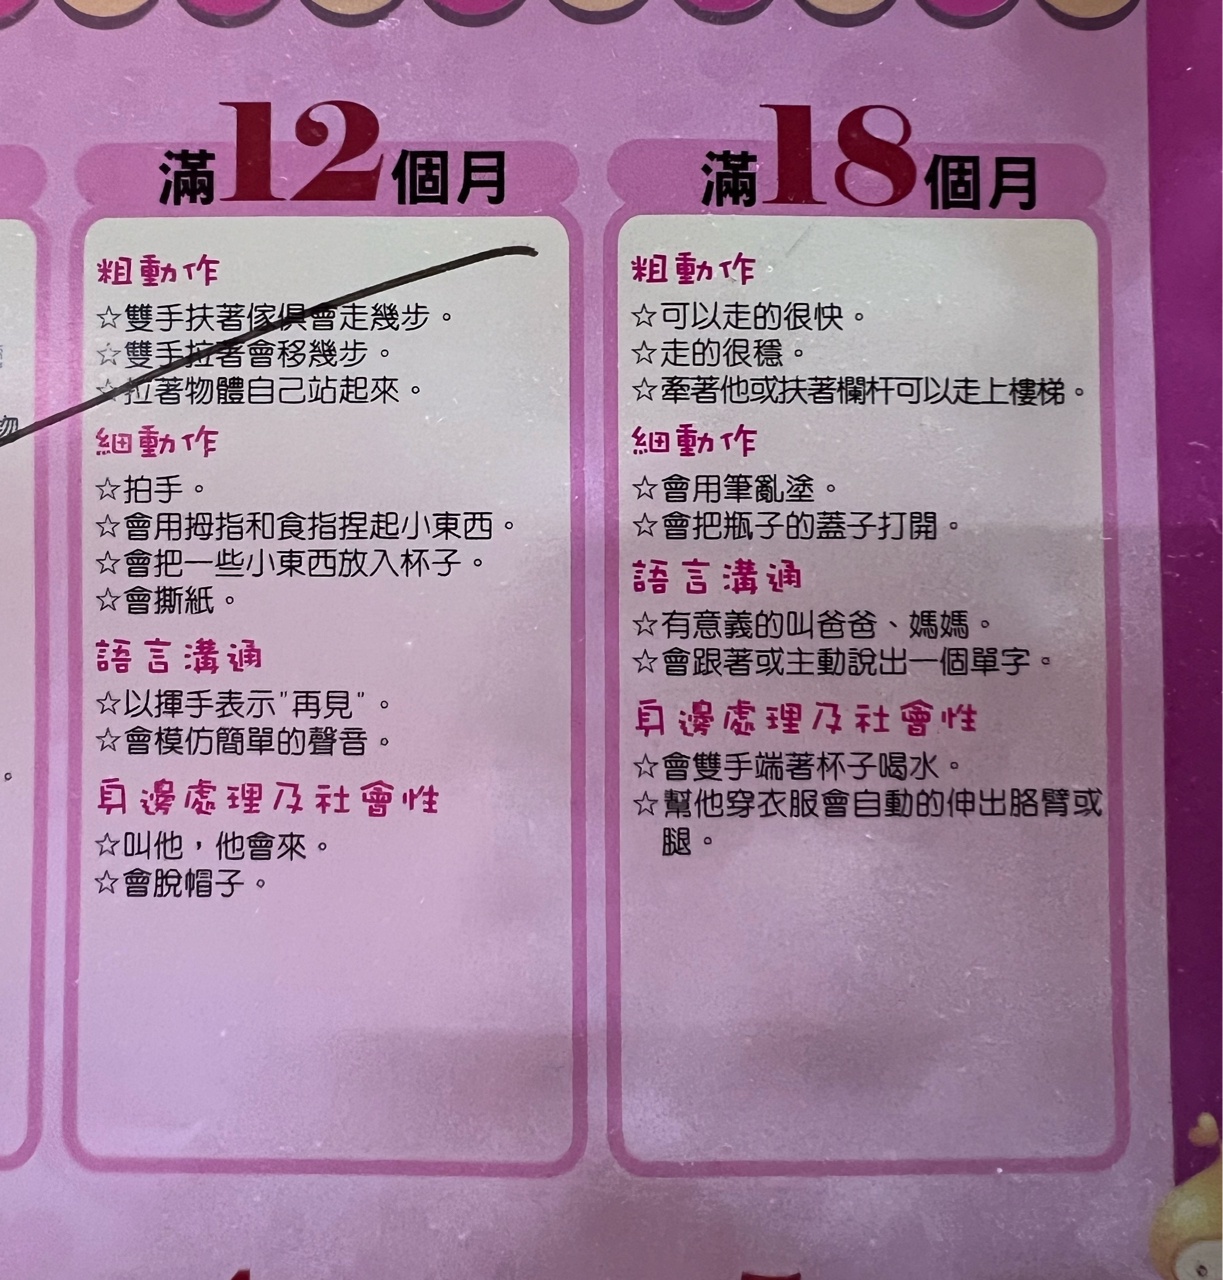 滿12個月
粗動作
☆雙手扶著傢俱會走幾步。
☆雙手拉著會移幾步。
☆拉著物體自己站起來。
細動作
☆拍手。
☆會用拇指和食指捏起小東西。
☆會把一些小東西放入杯子。
☆會撕紙。
語言溝通
☆以揮手表示"再見"。
☆會模仿簡單的聲音。
身邊處理及社會性
☆叫他，他會來。
☆會脫帽子。
滿18個月
粗動作
☆可以走的很快。
☆走的很穩。
☆牽著他或扶著欄杆可以走上樓梯。
細動作
☆會用筆亂塗。
☆會把瓶子的蓋子打開。
語言溝通
☆有意義的叫爸爸、媽媽。
☆會跟著或主動說出一個單字。
身邊處理及社會性
☆會雙手端著杯子喝水。
☆幫他穿衣服會自動的伸出胳臂或
腿。